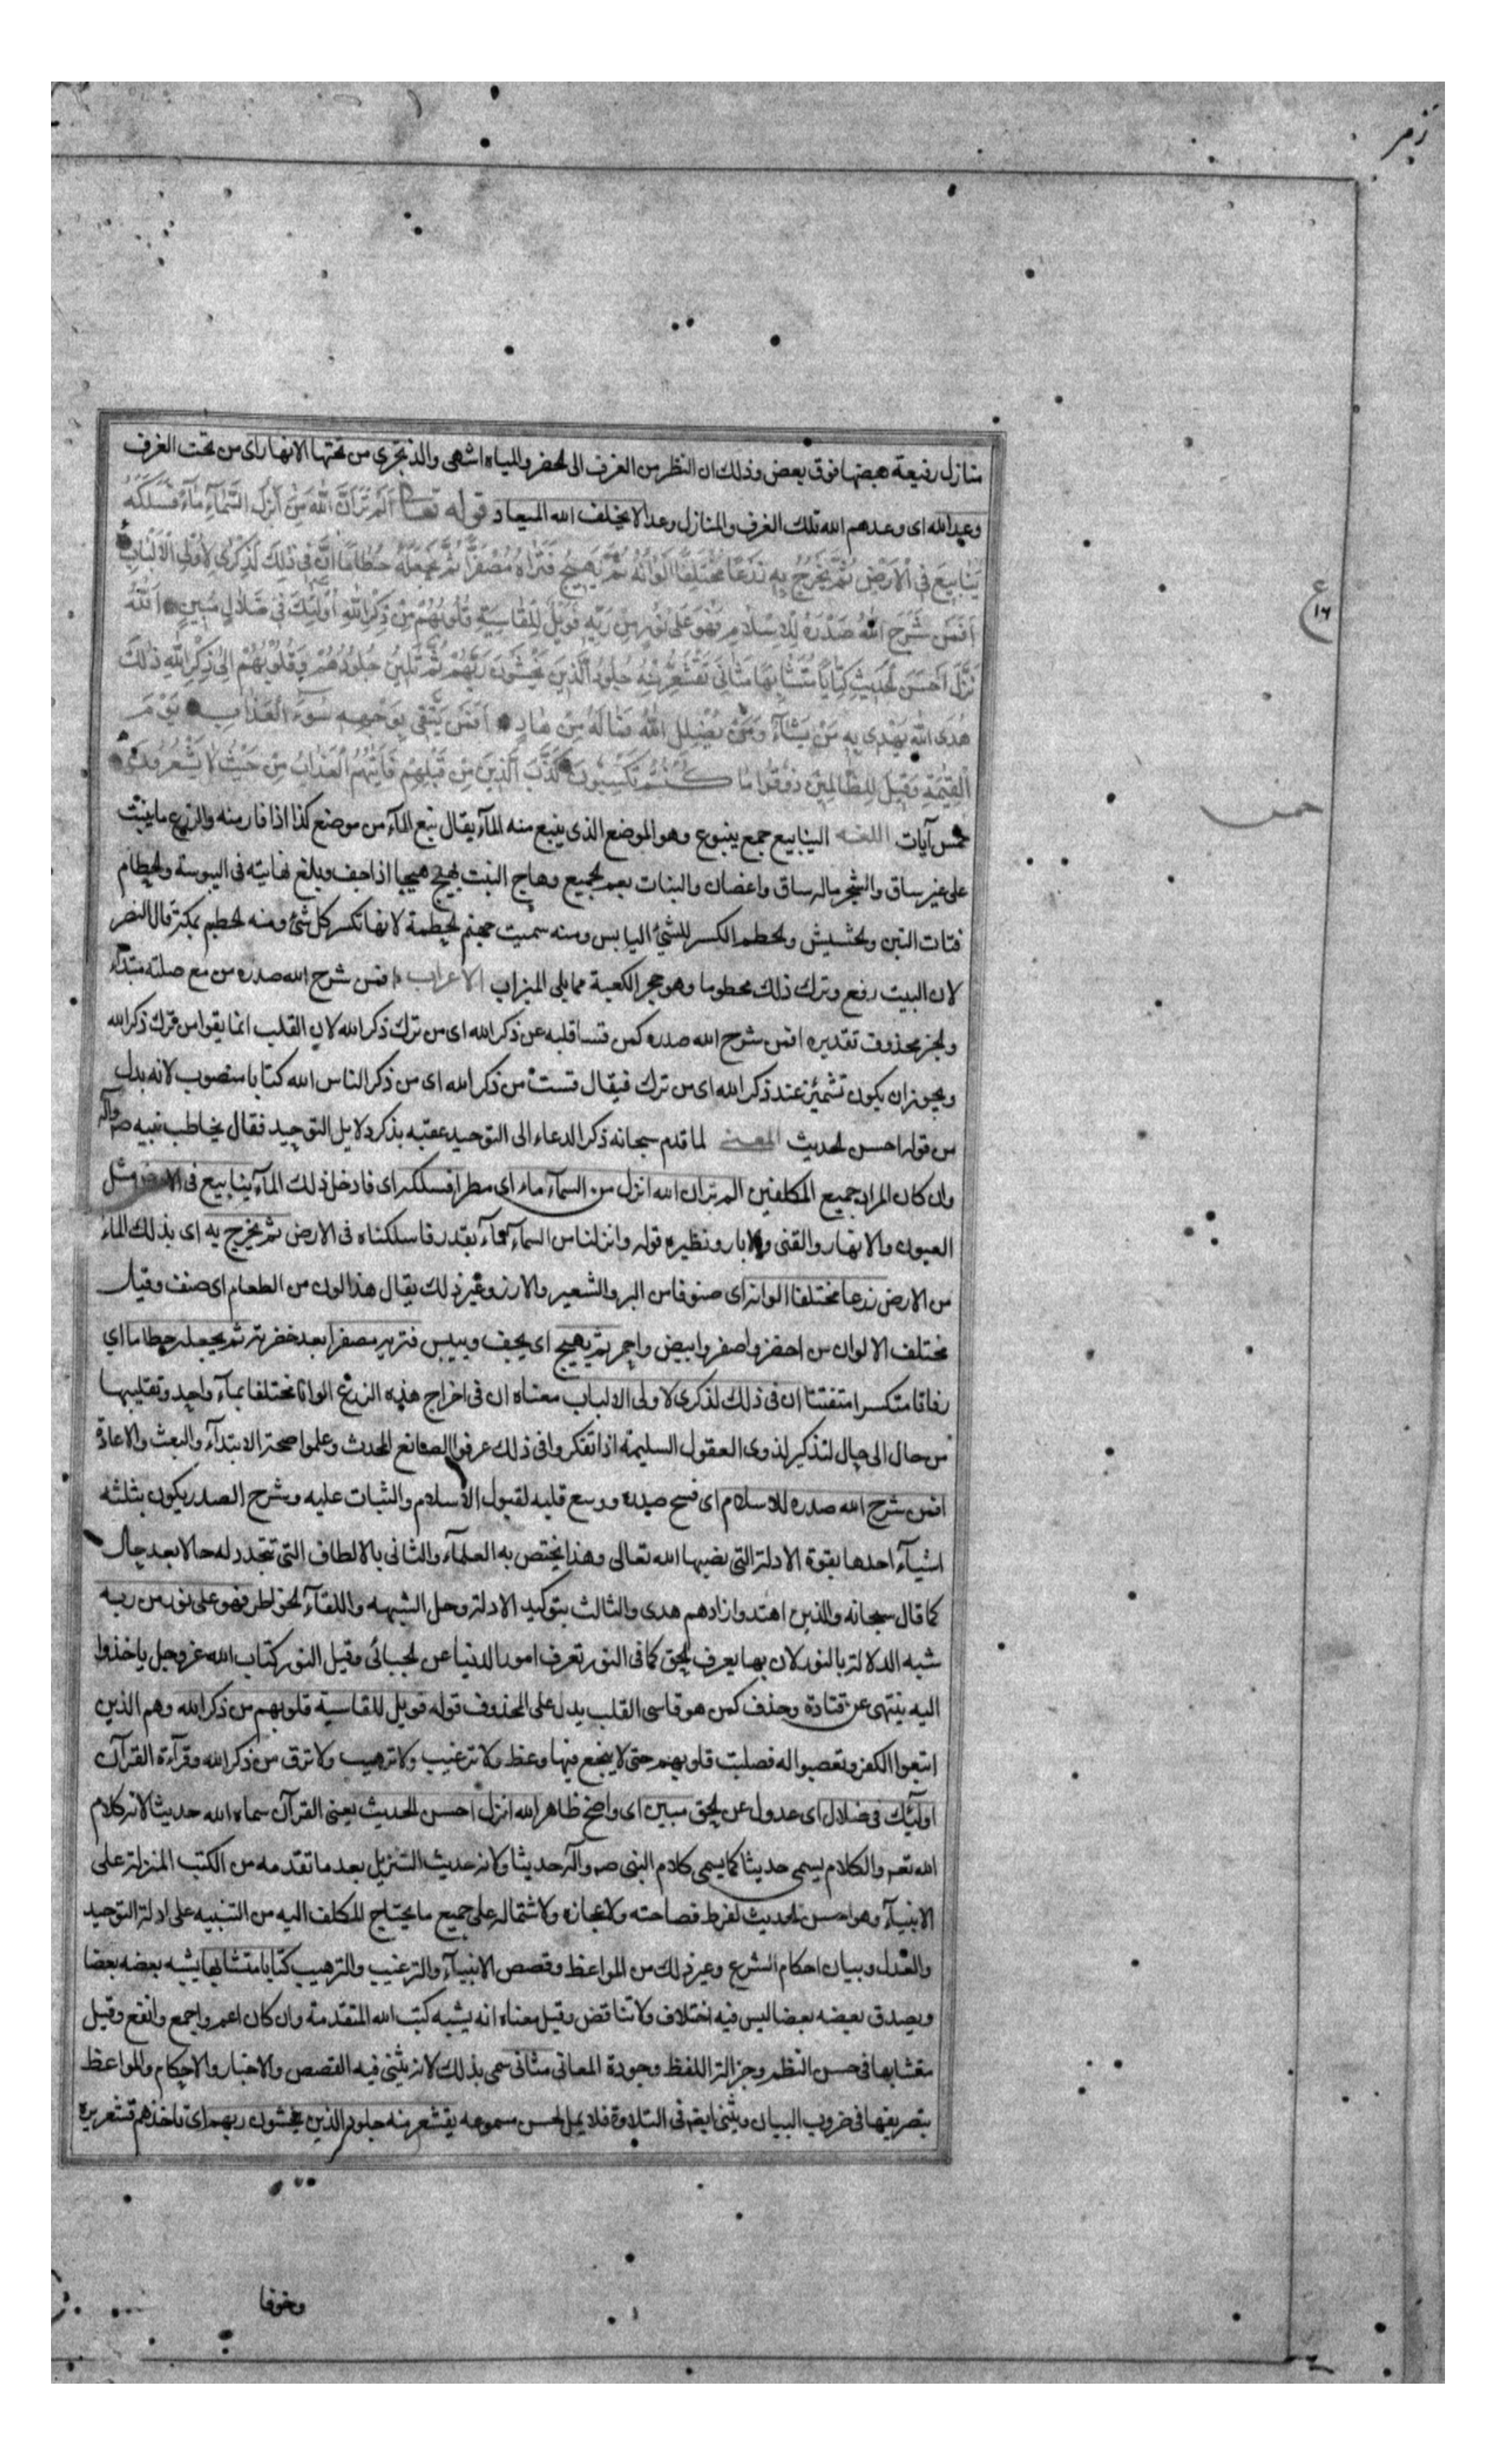 زمر
منازل رفيعة بعضها فوق بعض وذلك ان النظر من الغرف الى الخضر والمياه اشهى والذ تجرى من تحتها الانهار اى من تحت الغرف
وعد الله اى وعدهم الله تلك الغرف والمنازل وعدا لا يخلف الله الميعاد قوله تعالى اَلَمْ تَرَ اَنَّ اللهَ اَنْزَلَ مِنَ السَّمَآءِ مَآءً فَسَلَكَهُ
يَنَابِيعَ فِى الْاَرْضِ ثُمَّ يُخْرِجُ بِهِ زَرْعًا مُخْتَلِفًا اَلْوَانُهُ ثُمَّ يَهِيجُ فَتَرَاهُ مُصْفَرًّا ثُمَّ يَجْعَلُهُ حُطَامًا اِنَّ فِى ذٰلِكَ لَذِكْرٰى لِاُولِى الْاَلْبَابِ
اَفَمَنْ شَرَحَ اللهُ صَدْرَهُ لِلْاِسْلَامِ فَهُوَ عَلٰى نُورٍ مِنْ رَبِّهِ فَوَيْلٌ لِلْقَاسِيَةِ قُلُوبُهُمْ مِنْ ذِكْرِ اللهِ اُولٰئِكَ فِى ضَلَالٍ مُبِينٍ اَللهُ
نَزَّلَ اَحْسَنَ الْحَدِيثِ كِتَابًا مُتَشَابِهًا مَثَانِىَ تَقْشَعِرُّ مِنْهُ جُلُودُ الَّذِينَ يَخْشَوْنَ رَبَّهُمْ ثُمَّ تَلِينُ جُلُودُهُمْ وَقُلُوبُهُمْ اِلٰى ذِكْرِ اللهِ ذٰلِكَ
هُدَى اللهِ يَهْدِى بِهِ مَنْ يَشَآءُ وَمَنْ يُضْلِلِ اللهُ فَمَا لَهُ مِنْ هَادٍ اَفَمَنْ يَتَّقِى بِوَجْهِهِ سُوءَ الْعَذَابِ يَوْمَ
الْقِيٰمَةِ وَقِيلَ لِلظَّالِمِينَ ذُوقُوا مَا كُنْتُمْ تَكْسِبُونَ كَذَّبَ الَّذِينَ مِنْ قَبْلِهِمْ فَاَتٰهُمُ الْعَذَابُ مِنْ حَيْثُ لَا يَشْعُرُونَ
خمس آيات اللغة الينابيع جمع ينبوع وهو الموضع الذى ينبع منه المآء يقال نبع المآء من موضع كذا اذا فار منه والزرع ما ينبت
على غير ساق والشجر ماله ساق واغصان والنبات يعم الجميع وهاج النبت يهيج هيجا اذا جف وبلغ نهايته فى اليبوسة والحطام
فتات التبن والحشيش والحطم الكسر للشئ اليابس ومنه سميت جهنم الحطمة لانها تكسر كل شئ ومنه الحطيم بمكة قال النضر
لان البيت رفع وترك ذلك محطوما وهو حجر الكعبة مما يلى الميزاب الاعراب افمن شرح الله صدره من مع صلته مبتدأ
والخبر محذوف تقديره افمن شرح الله صدره كمن قسا قلبه عن ذكر الله اى من ترك ذكر الله لان القلب انما يقسوا من ترك ذكر الله
ويجوز ان يكون تشمئز عند ذكر الله اى من ترك فيقال قست من ذكر الله اى من ذكر الناس الله كتابا منصوب لانه بدل
من قوله احسن الحديث المعنى لما قدم سبحانه ذكر الدعاء الى التوحيد عقبه بذكر دلايل التوحيد فقال يخاطب نبيه صم وآله
وان كان المراد جميع المكلفين الم تر ان الله انزل من السمآء ماء اى مطرا فسلكه اى فادخل ذلك المآء ينابيع فى الارض مثل
العيون والانهار والقنى والابار ونظيره قوله وانزلنا من السمآء مآء بقدر فاسكناه فى الارض ثم يخرج به اى بذلك الماء
من الارض زرعا مختلفا الوانه اى صنوفا من البر والشعير والارز وغير ذلك يقال هذا لون من الطعام اى صنف وقيل
مختلف الالوان من اخضر واصفر وابيض واحمر ثم يهيج اى يجف وييبس فتريه مصفرا بعد خضرته ثم يجعله حطاما اى
رفاتا متكسرا متفتتا ان فى ذلك لذكرى لاولى الالباب معناه ان فى اخراج هذه الزرع الوانا مختلفا بمآء واحد وتقليبها
من حال الى حال لتذكير لذوى العقول السليمة اذا تفكروا فى ذلك عرفوا الصانع المحدث وعلموا صحة الابتدآء والبعث والاعادة
افمن شرح الله صدره للاسلام اى فسح صدره ووسع قلبه لقبول الاسلام والثبات عليه وشرح الصدر يكون بثلثه
اشيآء احدها بقوة الادلة التى نصبها الله تعالى وهذا يختص به العلمآء والثانى بالالطاف التى تتجدد له حالا بعد حال
كما قال سبحانه والذين اهتدوا زادهم هدى والثالث بتوكيد الادلة وحل الشبهه والقآء الخواطر فهو على نور من ربه
شبه الدلالة بالنور لان بها يعرف الحق كما فى النور تعرف امور الدنيا عن الجبائى وقيل النور كتاب الله عز وجل ياخذوا
اليه ينتهى عن قتادة وحذف كمن هو قاسى القلب يدل على المحذوف قوله فويل للقاسية قلوبهم من ذكر الله وهم الذين
اتبعوا الكفر وتعصبوا له فصلبت قلوبهم حتى لا ينجع فيها وعظ ولا ترغيب ولا ترهيب ولا ترق من ذكر الله وقرآءة القرآن
اولئك فى ضلال اى عدول عن الحق مبين اى واضح ظاهر الله انزل احسن الحديث يعنى القرآن سماه الله حديثا لانه كلام
الله تعم والكلام يسمى حديثا كما يسمى كلام النبى صم وآله حديثا ولانه حديث التنزيل بعد ما تقدمه من الكتب المنزلة على
الانبيآء وهو احسن الحديث لفرط فصاحته ولاعجازه ولاشتماله على جميع ما يحتاج المكلف اليه من التنبيه على ادلة التوحيد
والعدل وبيان احكام الشرع وغير ذلك من المواعظ وقصص الانبيآء والترغيب والترهيب كتابا متشابها يشبه بعضه بعضا
ويصدق بعضه بعضا ليس فيه اختلاف ولا تناقض وقيل معناه انه يشبه كتب الله المتقدمة وان كان اعم واجمع وانفع وقيل
متشابها فى حسن النظم وجزالة اللفظ وجودة المعانى مثانى سمى بذلك لانه يثنى فيه القصص والاخبار والاحكام والمواعظ
بتصريفها فى ضروب البيان ويثنى ايضا فى التلاوة فلا يمل لحسن مسموعه يقشعر منه جلود الذين يخشون ربهم اى تاخذهم قشعريرة
وخوفا
ع
١٦
خمس